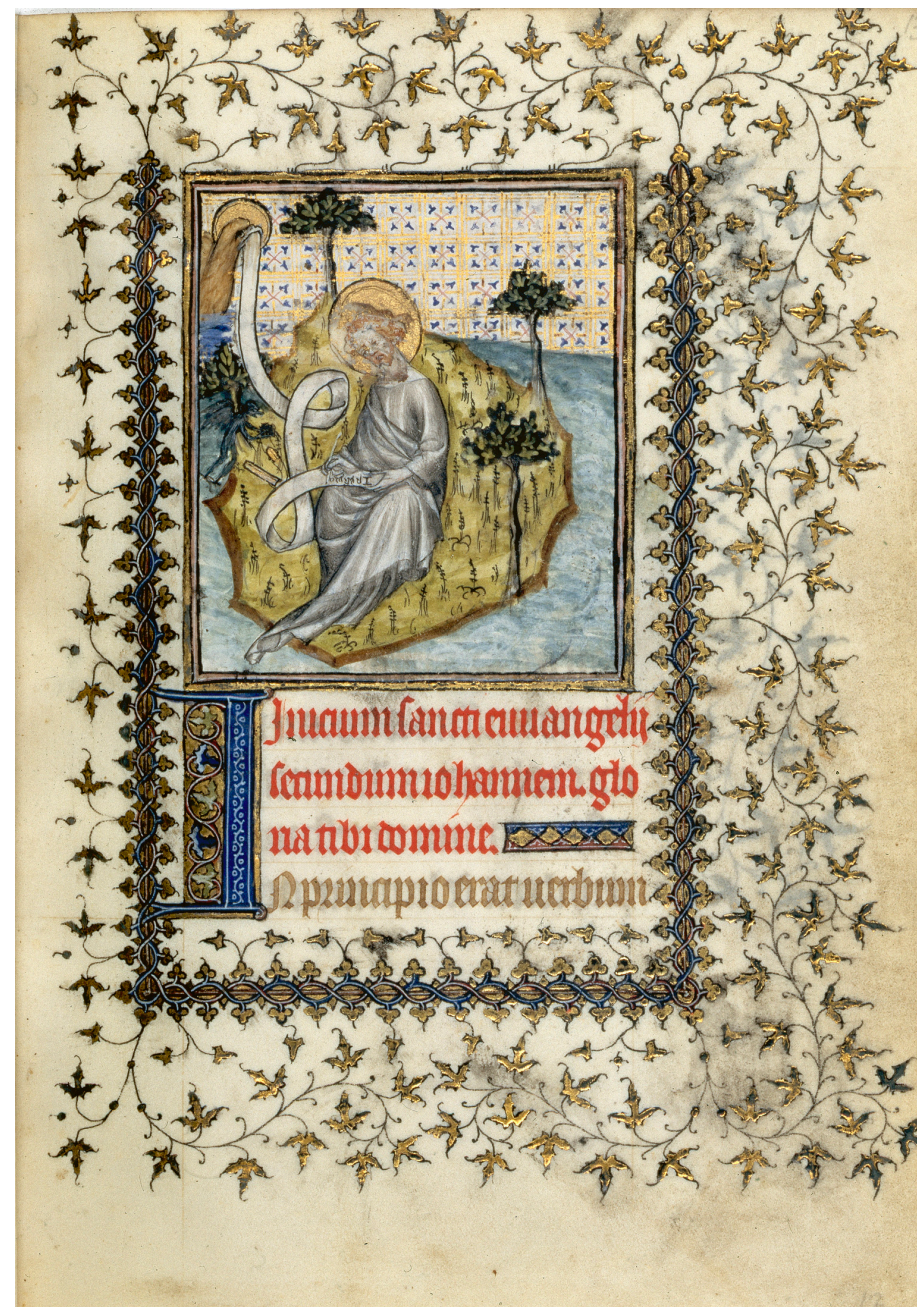 Inicium sancti euuangelii
secundum iohannem. glo
ria tibi domine.
IN principio erat uerbum